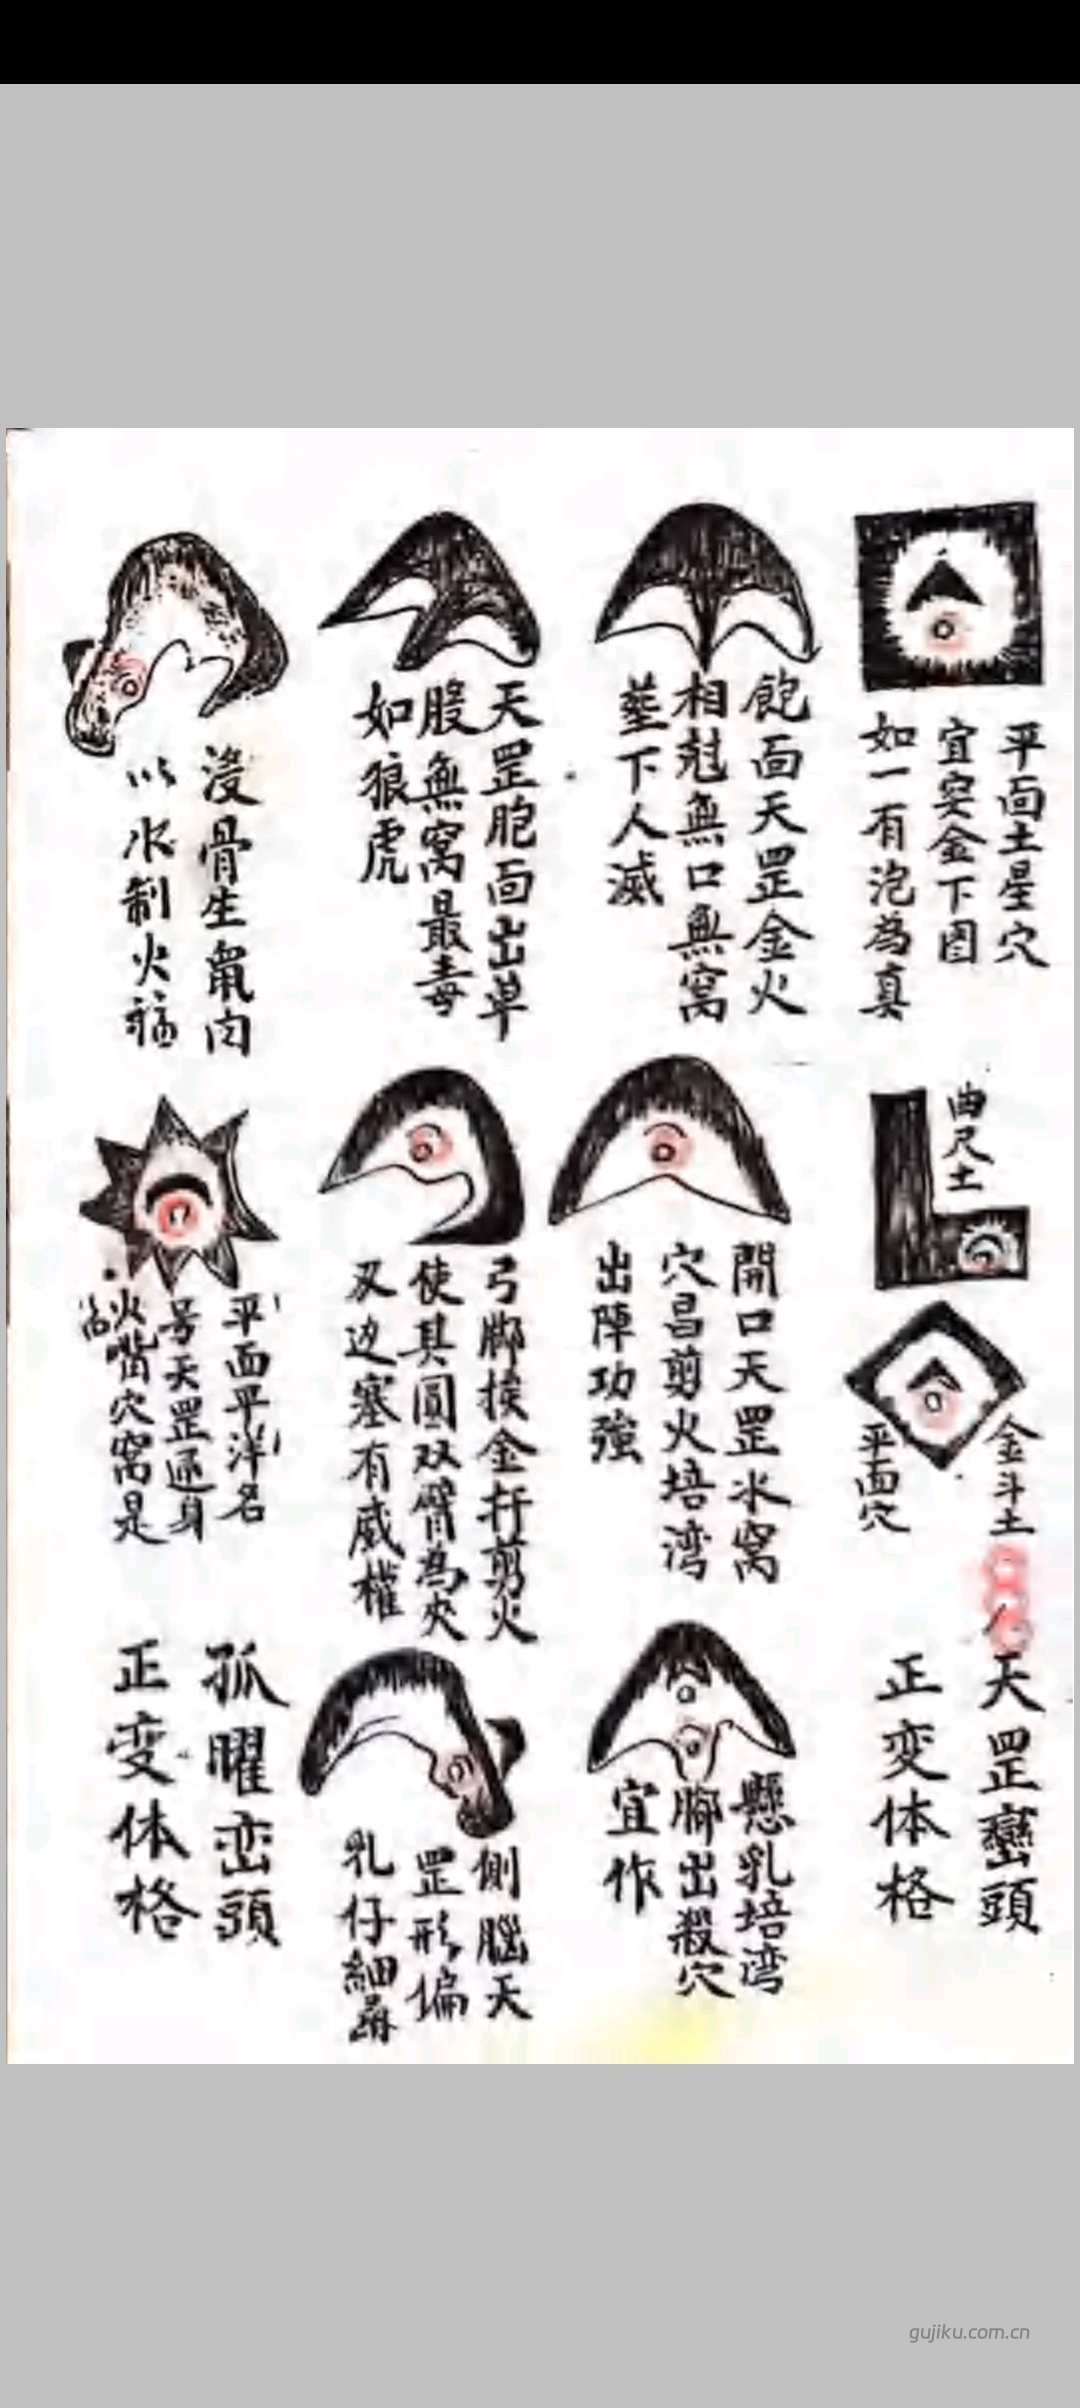 平面土星穴
宜安金下固
如一有泡為真
曲尺土
金斗土
平面穴
天罡巒頭
正变体格
飽面天罡金火
相尅無口無窩
塟下人滅
開口天罡水窩
穴昌剪火培湾
出陣功強
懸乳培湾
腳出殺穴
宜作
天罡胞面出草
股無窩最毒
如狼虎
弓腳挨金扦剪火
使其圓双臂為夾
刄边塞有威權
側腦天
罡形偏
乳仔細尋
没骨生氣肉
以水制火
平面平洋名
号天罡逐身
火嘴穴窩是
孤曜峦頭
正变体格
gujiku.com.cn